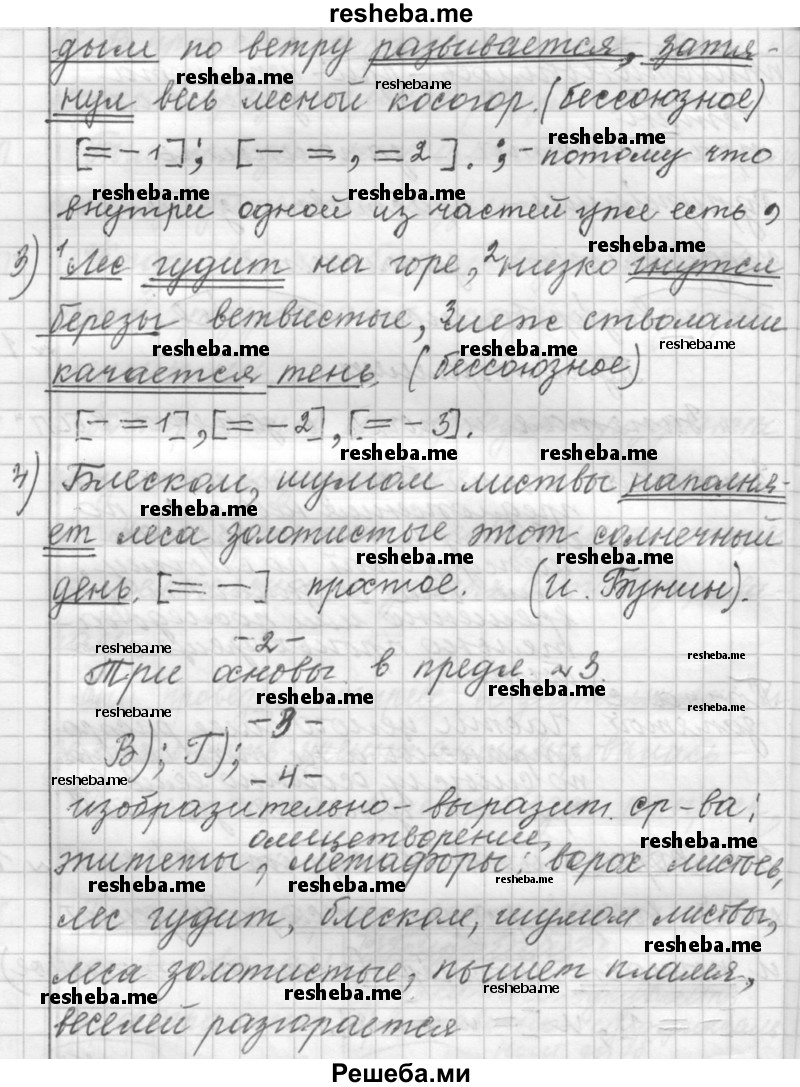 resheba.me
дым по ветру развивается, затя-
нул весь лесной косогор. (бессоюзное)
[= - 1]; [- =, = 2]. ; - потому что
внутри одной из частей уже есть ,
3) 1лес гудит на горе, 2низко гнутся
березы ветвистые, 3меж стволами
качается тень. (бессоюзное)
[- = 1], [= - 2], [= - 3].
4) Блеском, шумом листвы наполня-
ет леса золотистые этот солнечный
день. [= -] простое. (И. Бунин).
- 2 -
Три основы в предл. № 3.
- 3 -
В); Г);
- 4 -
изобразительно-выразит. ср-ва:
олицетворение,
эпитеты, метафоры: ворох листьев,
лес гудит, блеском, шумом листвы,
леса золотистые, пышет пламя,
веселей разгорается
Решеба.ми